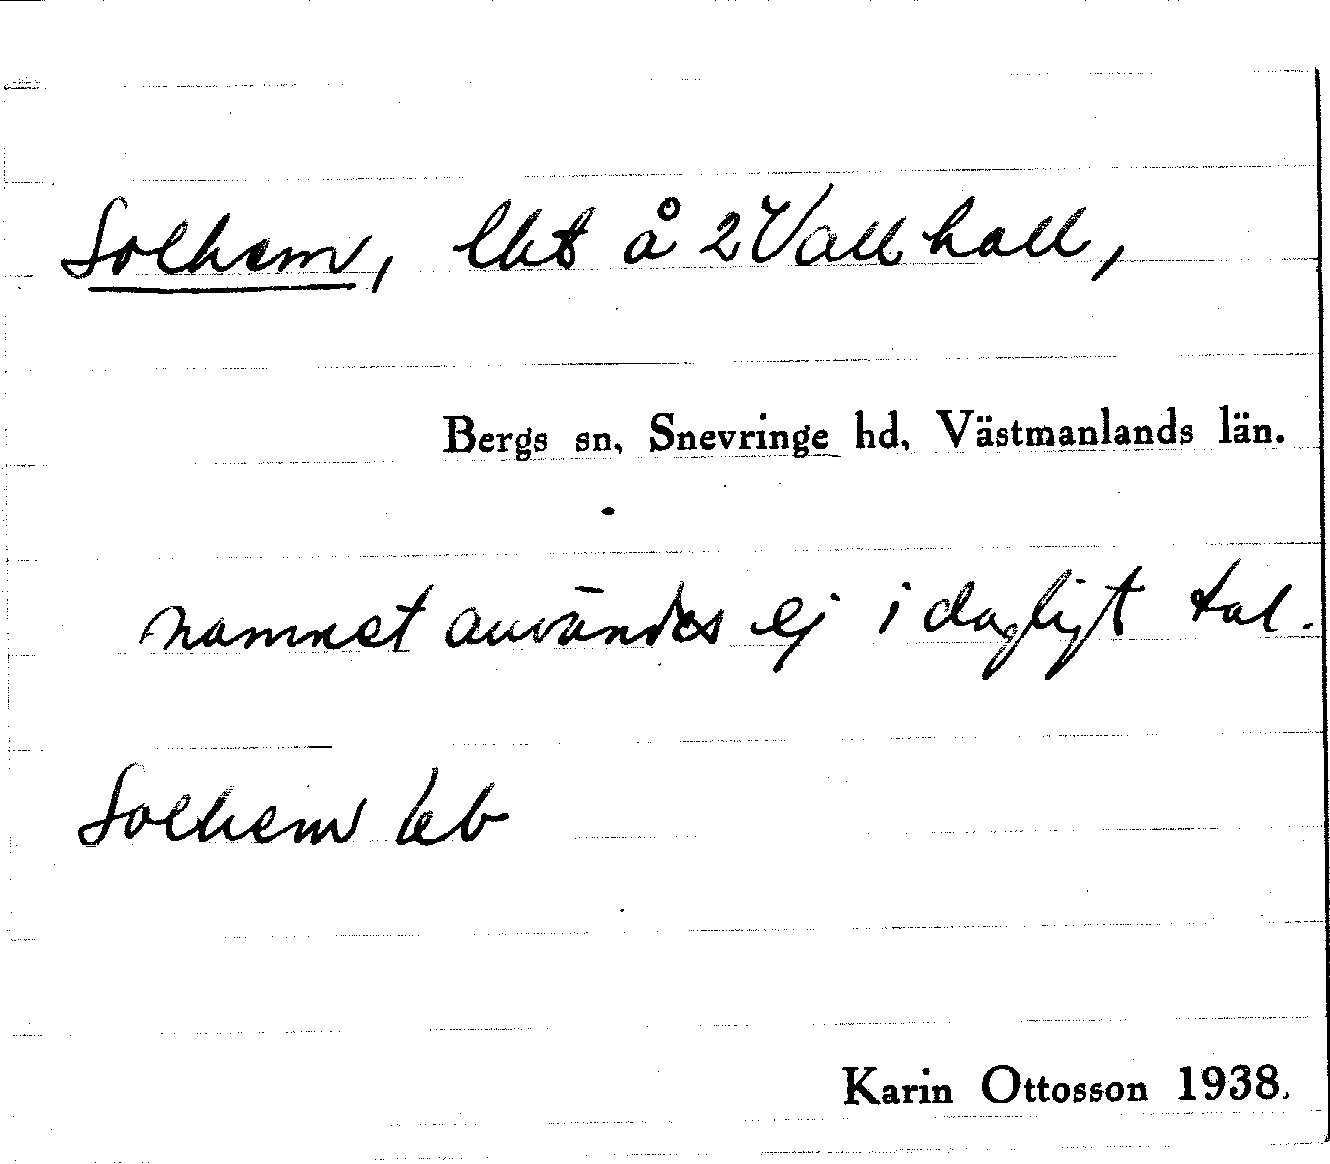 Solhem, lht å 2 Vallhall,
Bergs sn, Snevringe hd, Västmanlands län.
namnet användes ej i dagligt tal.
Solhem
Karin Ottosson 1938.